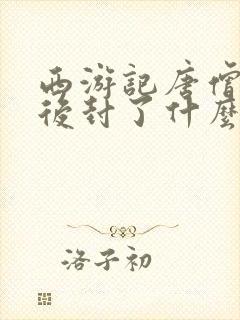 西游記唐僧
後封了什麼
洛子初